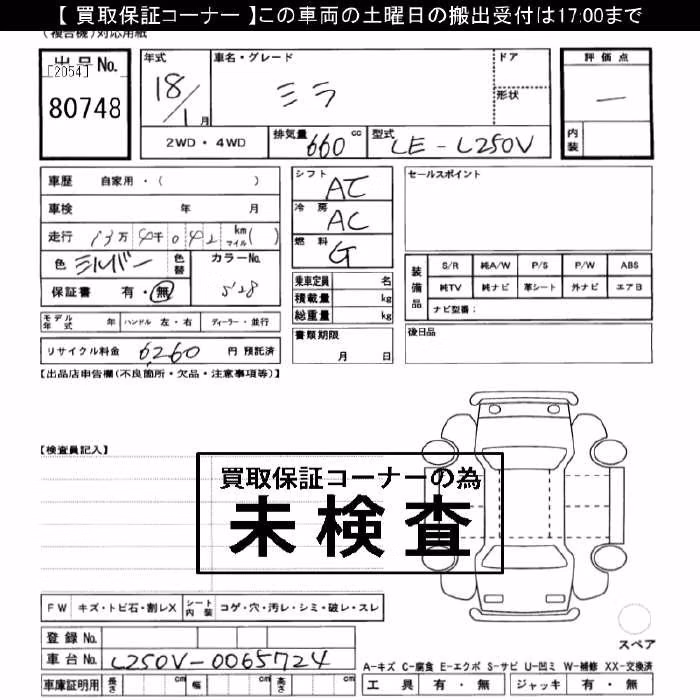 【 買取保証コーナー 】この車両の土曜日の搬出受付は17:00まで
(複合機)対応用紙
出品No.
[2054]
80748
年式
18/1月
車名・グレード
ミラ
ドア
形状
評価点
—
内装
2WD・4WD
排気量 660 cc
型式 LE-L250V
車歴 自家用・( )
車検 年 月
走行 13万4千042 km マイル( )
色 シルバー
色替
カラーNo.
S28
保証書 有・無
シフト AT
冷房 AC
燃料 G
乗車定員 名
積載量 kg
総重量 kg
書類期限
月 日
セールスポイント
装備品
S/R 純A/W P/S P/W ABS
純TV 純ナビ 革シート 外ナビ エアB
ナビ型番:
後日品
モデル年式 年 ハンドル 左・右 ディーラー・並行
リサイクル料金 6,260 円 預託済
【出品店申告欄(不良箇所・欠品・注意事項等)】
【検査員記入】
買取保証コーナーの為
未検査
FW キズ・トビ石・割レX シート内装 コゲ・穴・汚レ・シミ・破レ・スレ
スペア
登録No.
車台No. L250V-0065724
車庫証明用 長さ cm 幅 cm 高さ cm
A-キズ C-腐食 E-エクボ S-サビ U-凹ミ W-補修 XX-交換済
工具 有・無 ジャッキ 有・無